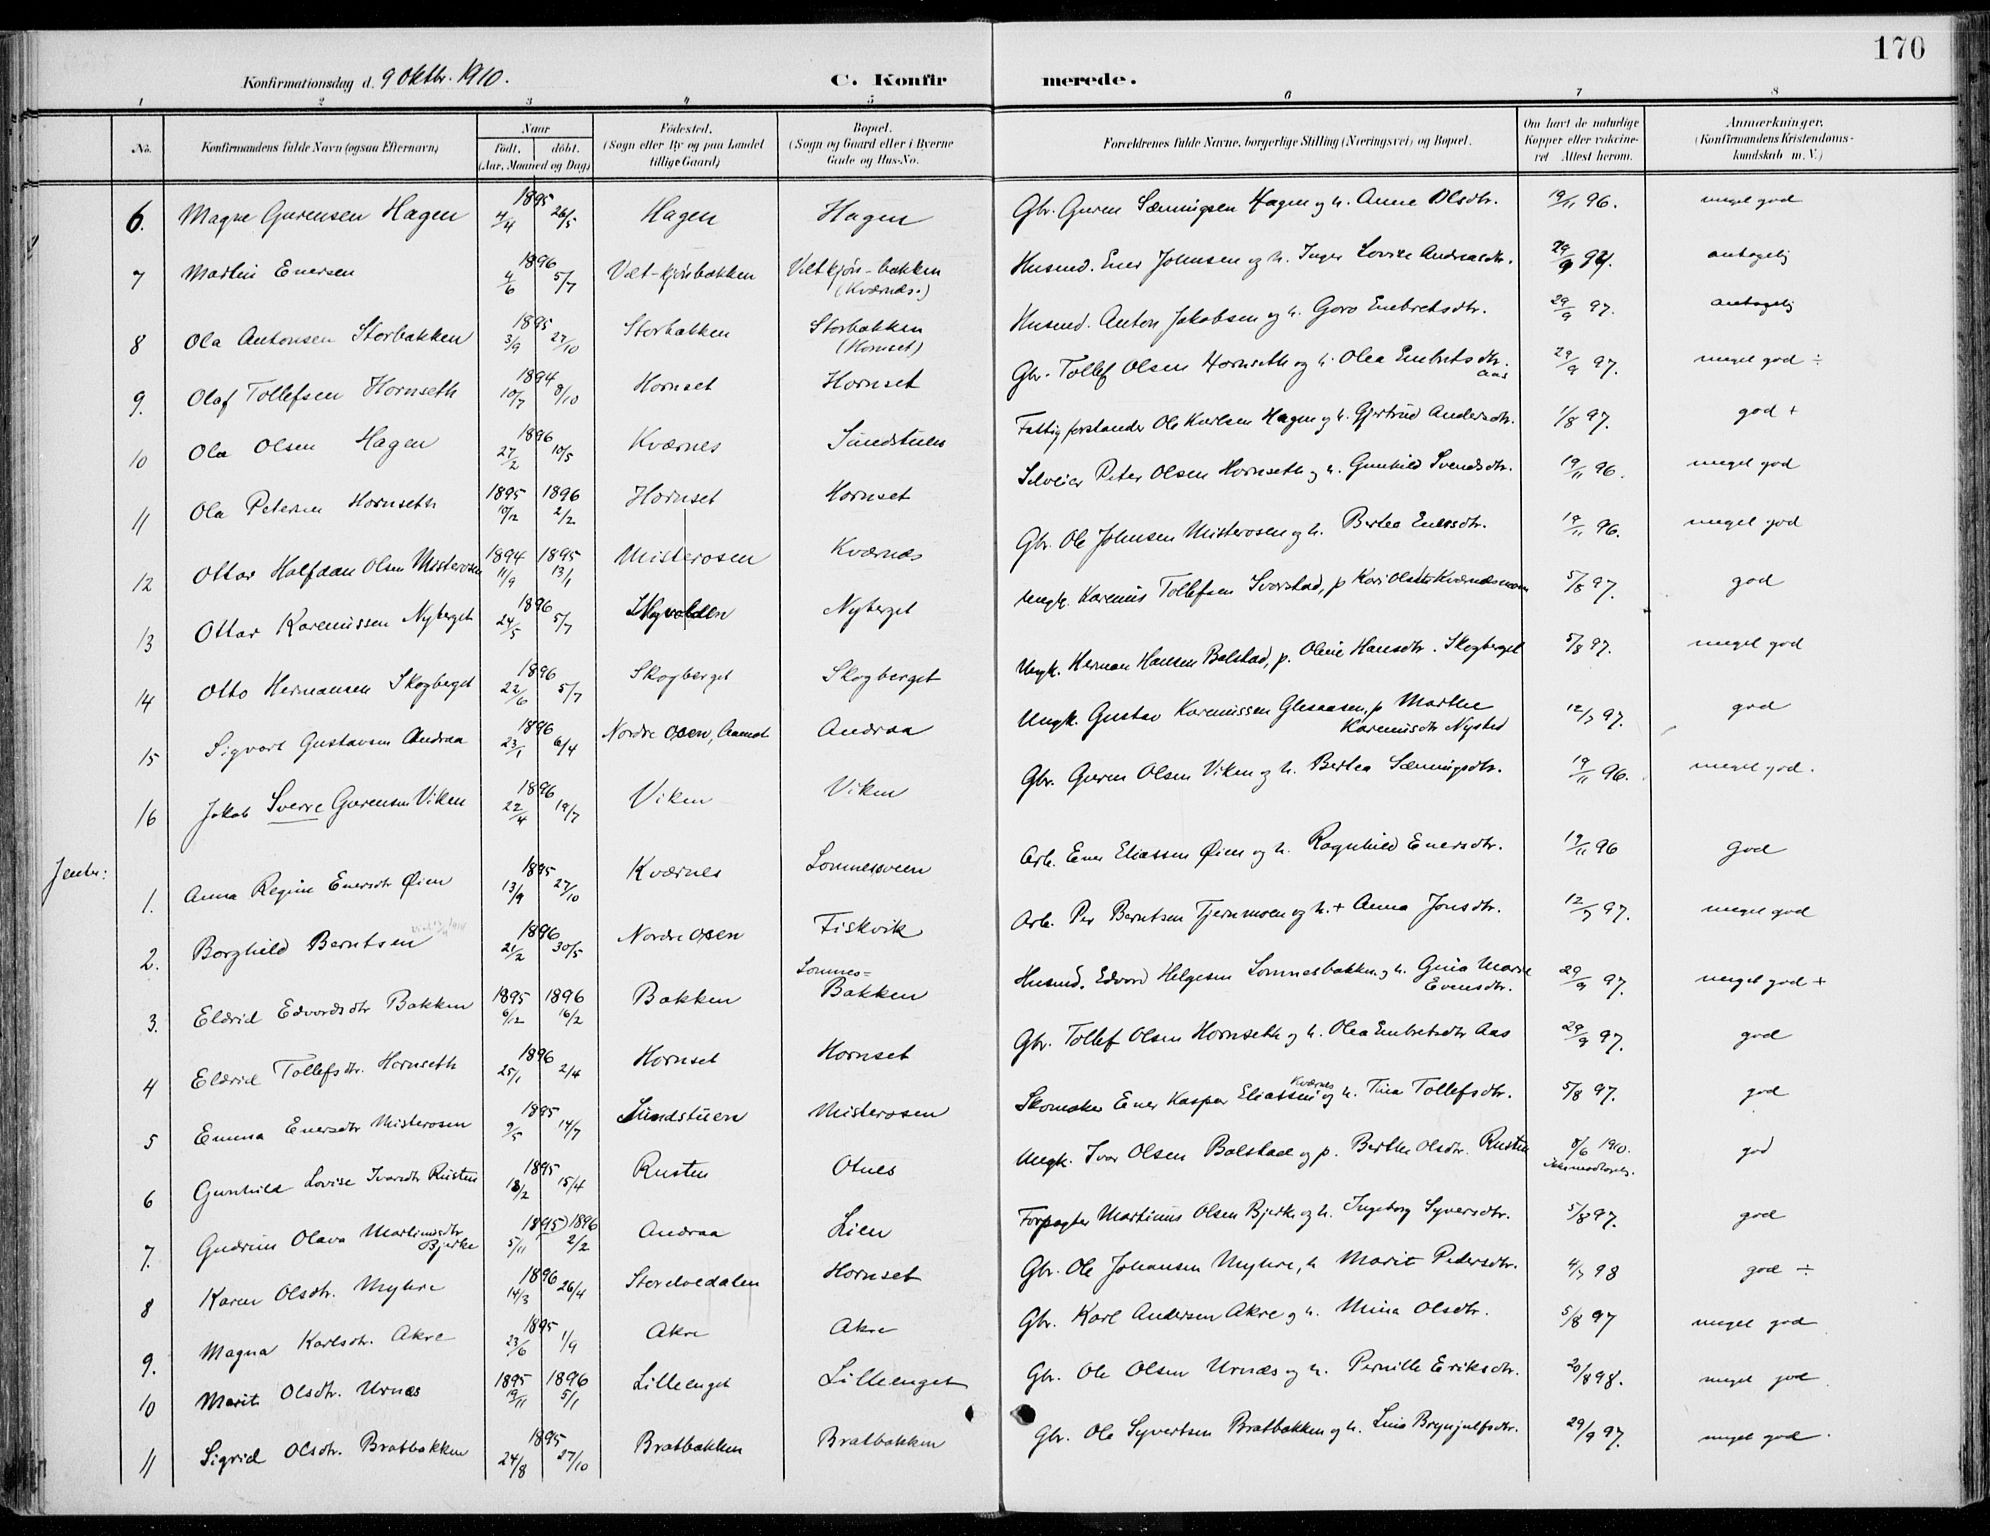 170
Konfirmationsdag d. 9 Oktbr. 1910.
C. Konfirmerede.
1 2 3 4 5 6 7 8
No. Konfirmandens fulde Navn (ogsaa Efternavn) Naar født. døbt. (Aar, Maaned og Dag) Fødested. (Sogn eller By og paa Landet tillige Gaard) Bopæl. (Sogn og Gaard eller i Byerne Gade og Hus-No. Forældrenes fulde Navne, borgerlige Stilling (Næringsvei) og Bopæl. Om havt de naturlige Kopper eller vaksineret Attest herom. Anmærkninger. (Konfirmandens Kristendomskundskab m. V.)
6. Magne Gurensen Hagen 1895 4/4 26/5 Hagen Hagen Gbr. Guren Sæmingsen Hagen og h. Anne Olsdtr. 19/11 96. meget god
7 Martin Enersen 1896 4/6 5/7 Veltkjønbakken Veltkjøn-bakken (Kværnæs.) Husmd. Ener Johnsen og h. Inger Lovise Andreasdtr. 29/9 97. antagelig
8 Ola Antonsen Storbakken 1895 3/9 27/10 Storbakken Storbakken (Hornset) Husmd. Anton Jakobsen og h. Goro Embretsdtr. 29/9 97. antagelig
9. Olaf Tollefsen Hornseth 1894 10/7 8/10 Hornset Hornset Gbr. Tollef Olsen Hornseth og h. Olea Embretsdtr. Aas 29/9 97. meget god ÷
10 Ola Olsen Hagen 1896 27/2 10/5 Kværnes Sundstuen Fattigforstander Ole Karlsen Hagen og h. Gjertrud Andersdtr. 1/8 97. god +
11 Ola Petersen Hornseth 1895 10/12 1896 2/2 Hornset Hornset Selveier Peter Olsen Hornseth og h. Gunhild Svendsdtr. 19/11 96. meget god
12 Ottar Halfdan Olsen Misterosen 1894 11/9 1895 13/1 Misterosen Kværnæs Gbr. Ole Johnsen Misterosen og h. Berthea Enersdtr. 19/11 96. meget god
13 Ottar Karenussen Nyberget 1896 24/5 5/7 Nyberget Ungk. Karenus Tollefsen Svorstad, p Kari Olsdtr Kværnæsmoen 5/8 97. god
14 Otto Hermansen Skogberget 1896 22/6 5/7 Skogberget Skogberget Ungk. Herman Hansen Bolstad, p. Oline Hansdtr. Skogberget 5/8 97. meget god
15 Sigvart Gustavsen Andraa 1896 23/1 6/4 Nordre Osen, Aamot Andraa Ungk. Gustav Karenussen Glesaasen, p Marthe Karenusdtr Nysted 12/7 97. god
16 Jakob Sverre Gurensen Viken 1896 22/4 19/7 Viken Viken Gbr. Guren Olsen Viken og h. Berthea Sæmingsdtr. 19/11 96. meget god.
Jenter:
1. Anna Regine Enersdtr Øien 1895 13/9 27/10 Kværnes Lomnessveen Arb. Ener Eliassen Øien og h. Ragnhild Enersdtr. 19/11 96 god
2. Borghild Berntsen 1896 21/2 30/5 Nordre Osen Fiskvik Arb. Per Berntsen Tjernmoen og h. + Anna Jonsdtr. 12/7 97. meget god
3. Eldrid Edvardsdtr Bakken 1895 6/12 1896 16/2 Bakken Lomnes=Bakken Husmd. Edvard Helgesen Lomnesbakken og h. Gina Marie Evensdtr. 29/9 97. meget god +
4 Eldrid Tollefsdtr. Hornseth 1896 25/1 2/4 Hornset Hornset Gbr. Tollef Olsen Hornseth og h. Olea Embretsdtr Aas 29/9 97. god
5 Emma Enersdtr Misterosen 1895 9/5 14/7 Sundstuen Misterosen Skomaker Ener Kasper Eliassen Kværnes og h. Tina Tollefsdtr. 5/8 97. god
6 Gunhild Lovise Ivarsdtr Rusten 1895 18/2 15/4 Rusten Otnes Ungk. Ivar Olsen Bolstad og p. Berthe Olsdtr. Rusten 8/6 1910. god
7. Gudrun Olava Martinusdtr Bjerke 1895 5/11 1896 2/2 Andraa Lien Forpagter Martinus Olsen Bjerke og h. Ingeborg Syversdtr. 5/8 97. god
8 Karen Olsdtr. Myhre 1896 14/3 26/4 Hornset Gbr. Ole Johansen Myhre, h Marit Pedersdtr. 4/7 98 god ÷
9. Magna Karlsdtr. Akre 1895 23/6 1/9 Akre Akre Gbr. Karl Andersen Akre og h. Mina Olsdtr. 5/8 97 meget god
10 Marit Olsdtr. Urnæs 1895 19/11 1896 5/1 Lilleenget Lilleenget Gbr. Ole Olsen Urnæs og h. Pernille Eriksdtr. 20/8 98. meget god
11 Sigrid Olsdtr. Bratbakken 1895 24/8 27/10 Bratbakken Bratbakken Gbr. Ole Syvertsen Bratbakken og h. Lina Brynjulfsdtr. 29/9 97. meget god.